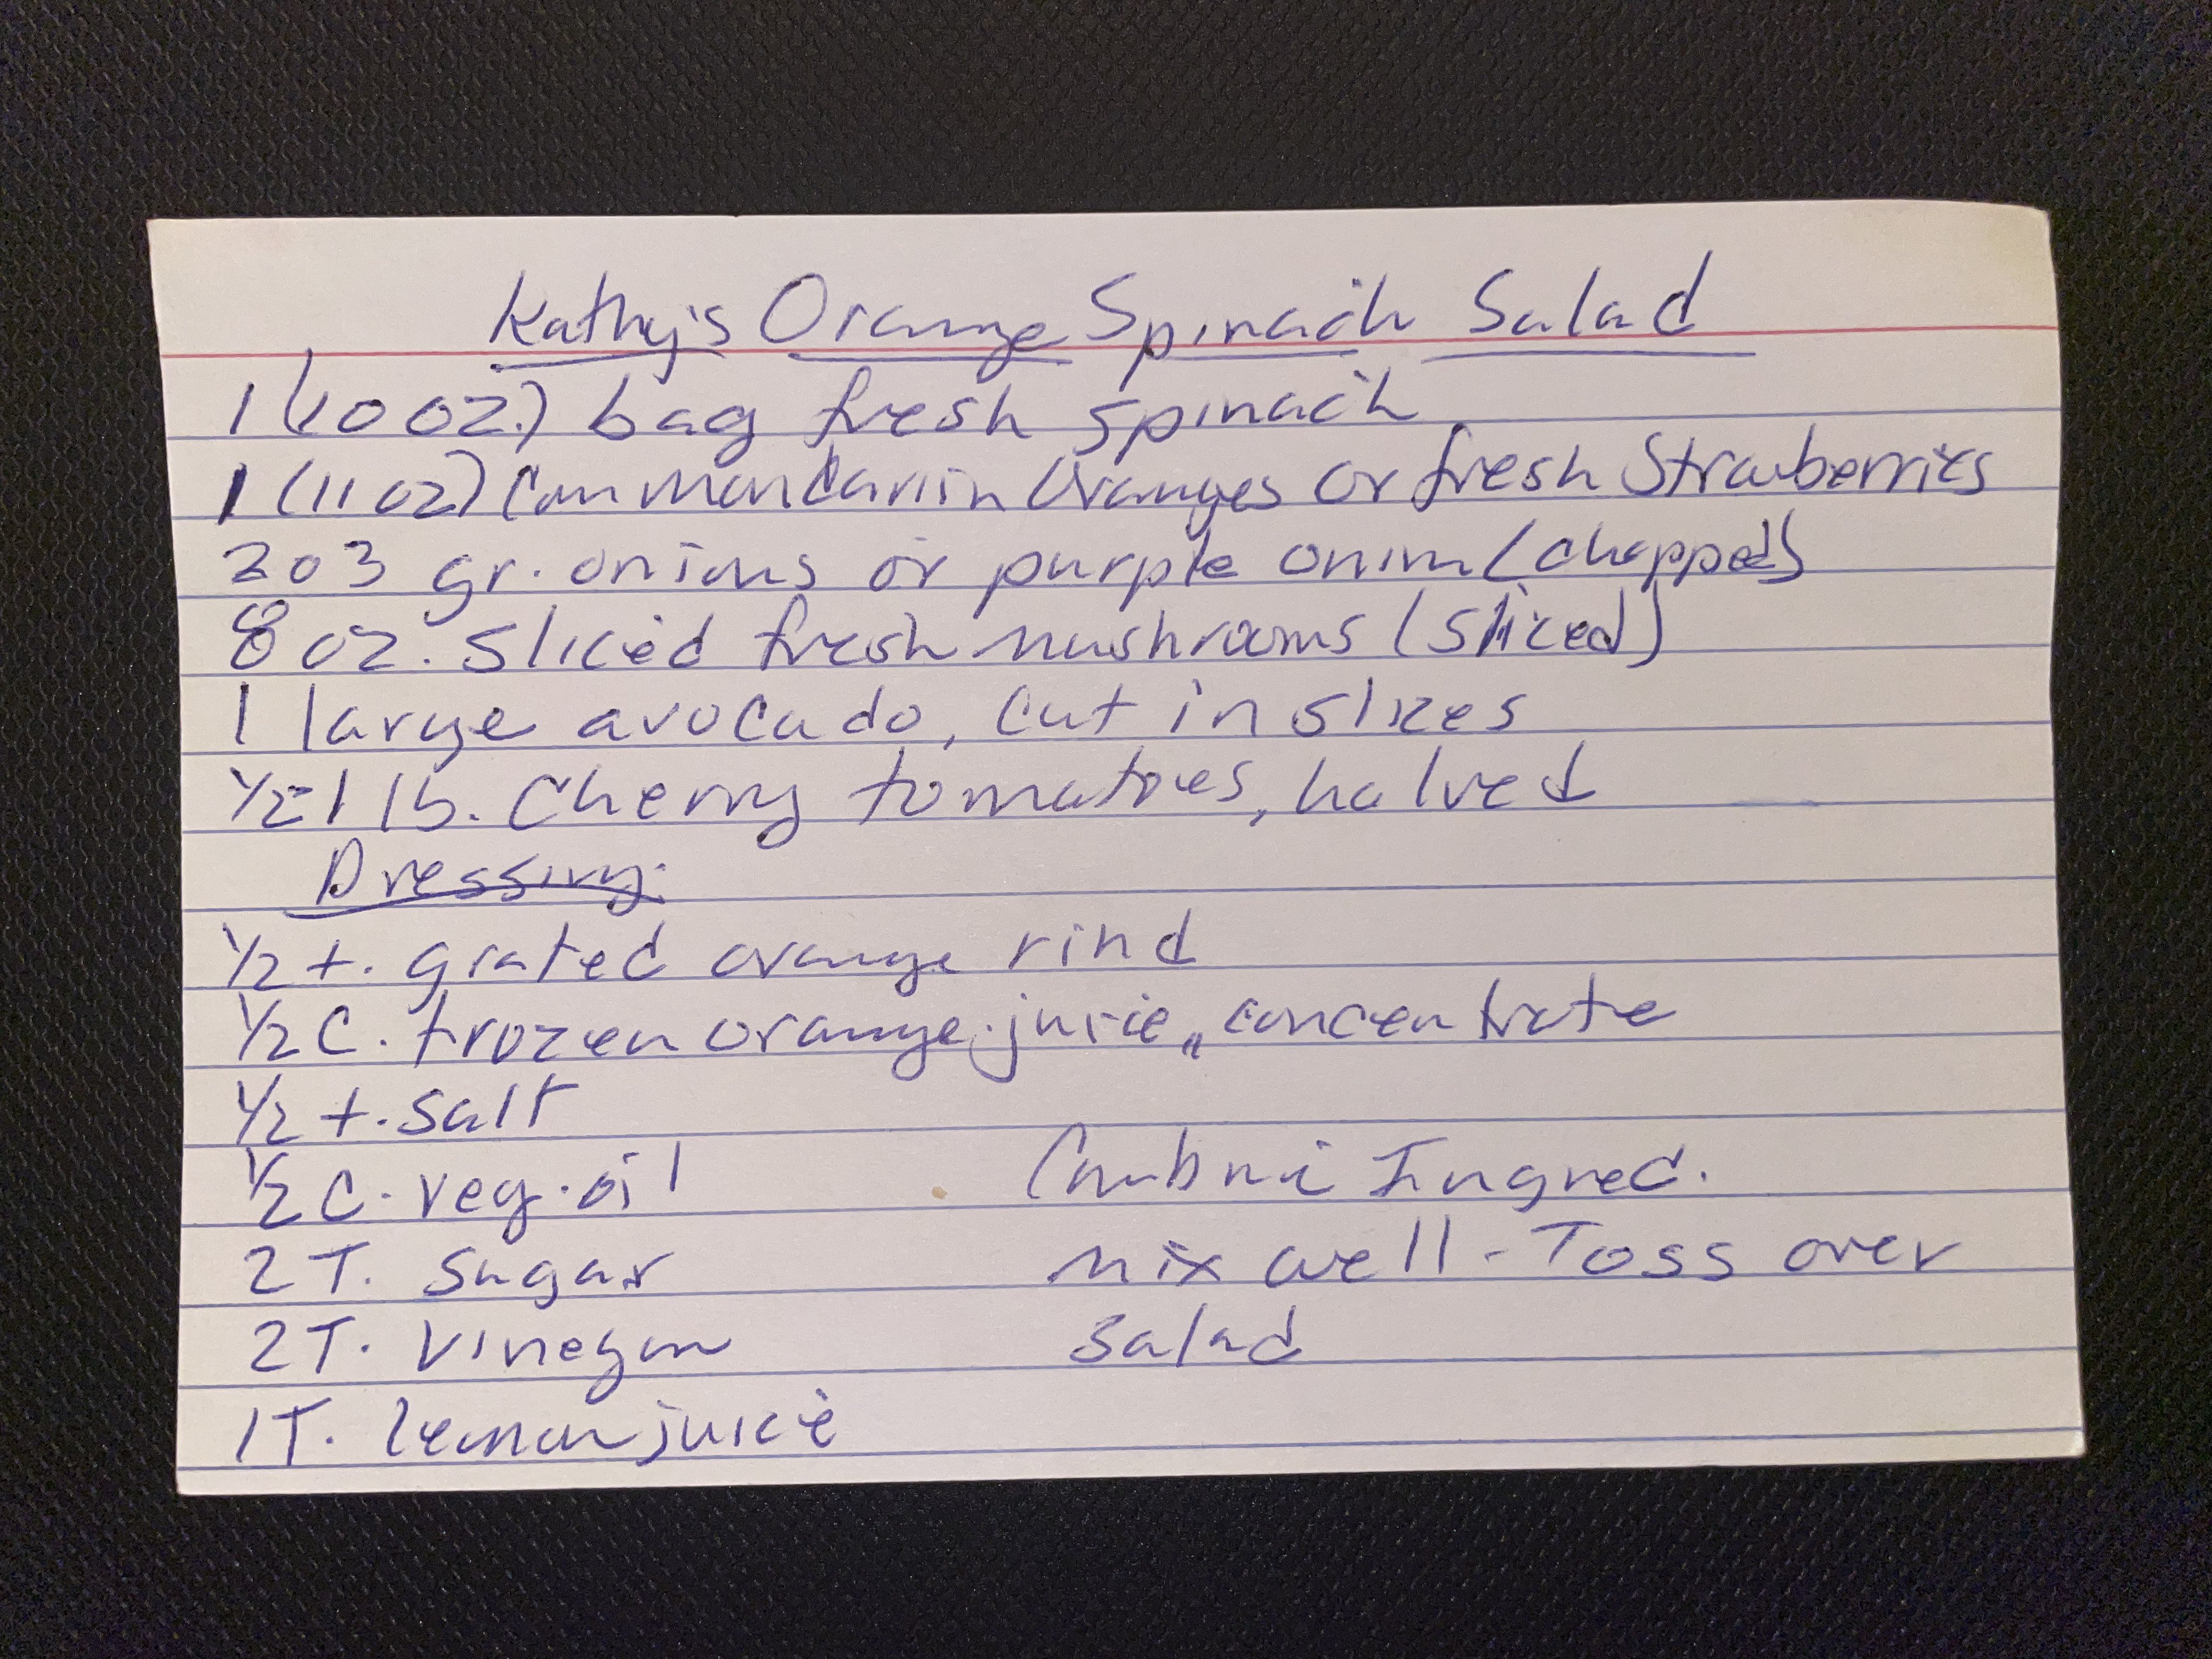 Kathy's Orange Spinach Salad
1 (10 oz.) bag fresh spinach
1 (11 oz) Can Mandarin Oranges or fresh Strawberries
2 o 3 gr. onions or purple onion (chopped)
8 oz. sliced fresh mushrooms (sliced)
1 large avocado, cut in slices
1/2-1 lb. Cherry tomatoes, halved
Dressing:
1/2 t. grated orange rind
1/2 C. frozen orange juice, concentrate
1/2 t. salt
1/2 C. veg. oil
2 T. Sugar
2 T. Vinegar
1 T. lemon juice
Combine Ingred.
mix well - Toss over
salad